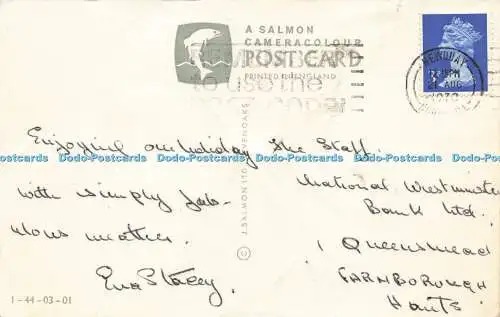 A SALMON
CAMERACOLOUR
POST CARD
PRINTED IN ENGLAND
to use the
NEWQUAY
PM
AUG
J. SALMON LTD. SEVENOAKS ©
Enjoying our holiday
with simply fab-
ulous weather.
Ena Stacey.
The Staff.
National Westminster
Bank Ltd.
1 Queensmead
FARNBOROUGH
Hants
1-44-03-01
Dodo-Postcards Dodo-Postcards Dodo-Postcards Dodo-Postcards Dodo-Postcards Dodo-Postcards Dodo-Postcards